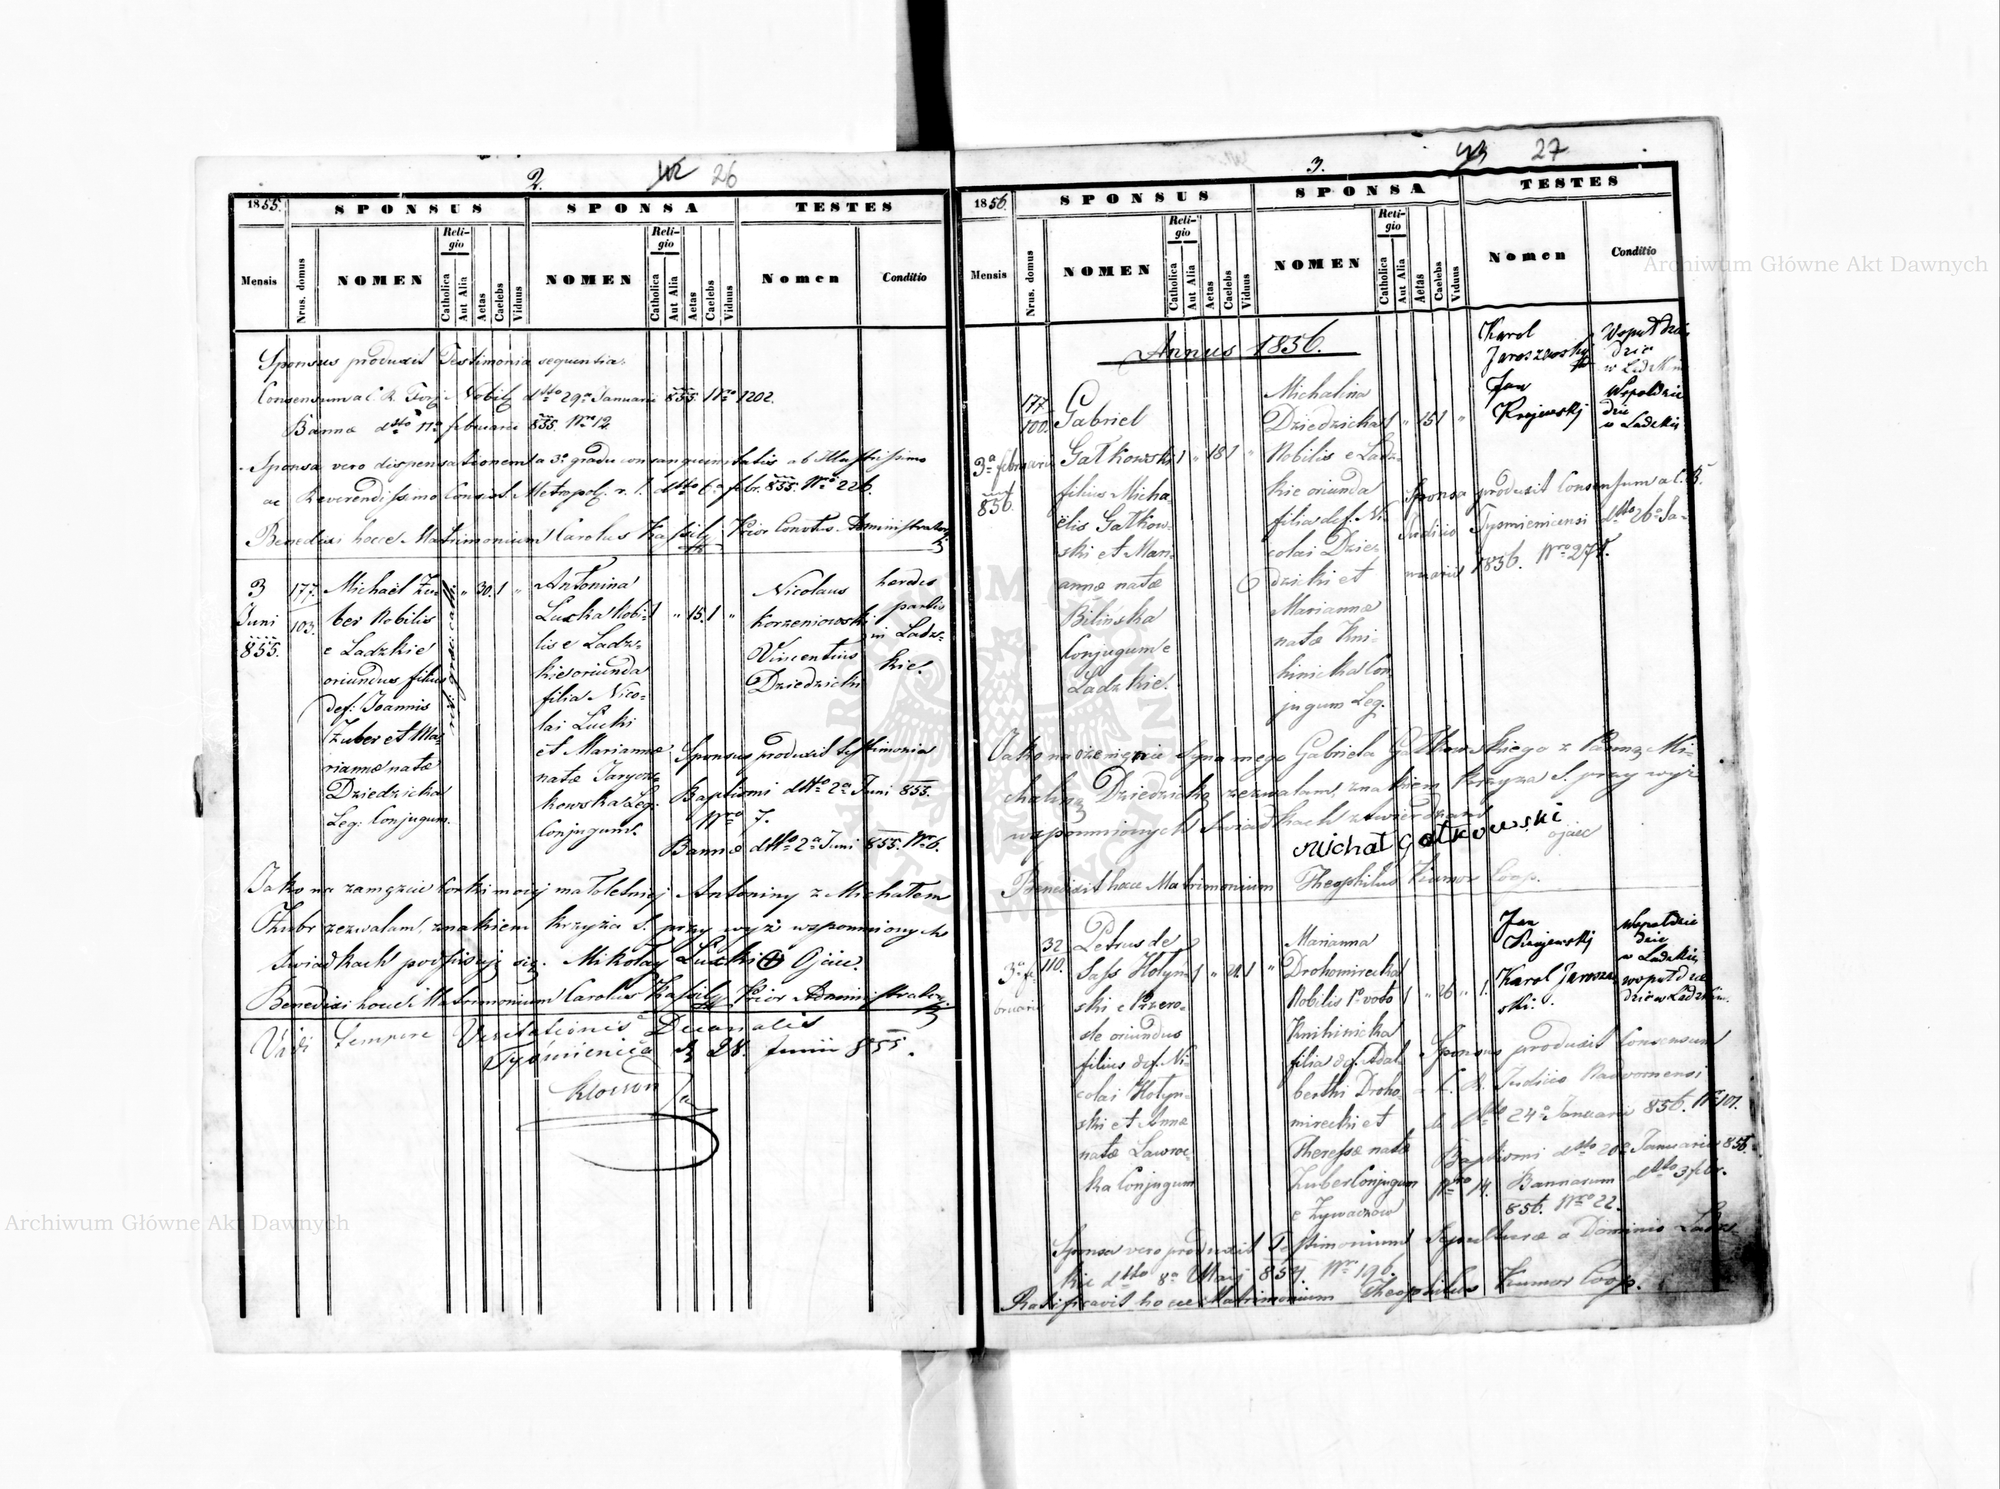 2. 26
1855.
SPONSUS SPONSA TESTES
Mensis
Nrus. domus
NOMEN
Religio
Catholica
Aut Alia
Aetas
Caelebs
Viduus
NOMEN
Religio
Catholica
Aut Alia
Aetas
Caelebs
Viduus
Nomen
Conditio
Sponsus produxit Testimonia sequentia:
Consensum a C. R. Nobil dtto 29a Januarii 855. Nro 1202.
Bannæ dtto 11a februarii 855. Nro 12.
Sponsa vero dispensationem a 3o gradu consanguinitatis ab Illustrissimo
ac Reverendissimo Consist. Metropol. r. l. dtto 6a febr. 855. Nro 226.
Benedixi hocce Matrimonium Carolus Prior Convtus. Administrator
3
Juni
855.
177.
103.
Michaël Zu-
ber Nobilis
e Ladzkie
oriundus filius
def: Joannis
Zuber et Ma-
riannæ natæ
Dziedzicka
Leg: Conjugum.
" 30. 1 "
Antonina
Lucka Nobi-
lis e Ladz-
kie oriunda
filia Nico-
lai Lucki
et Mariannæ
natæ
Leg:
Conjugum.
1 " 15. 1 "
Nicolaus
Korzeniowski
Vincentius
Dziedzicki
hærdes
partis
in Ladz-
kie.
Sponsus produxit testimonia
Baptismi dtto 2a Juni 855.
Nro 7.
Bannæ dtto 2a Juni 855. Nr 6.
Jako na zamęzcie Corki moiej małoletniej Antoniny z Michałem
Zubr zezwalam, znakiem krzyża S. przy wyż wzpomnionych
Swiadkach podpisuję się. Mikołay Lucki + Ojciec.
Benedixi hocce Matrimonium Carolus Prior Administrator
Vidi tempore Visitationis Decanalis
Tyśmienica d 28. Junii 855.
3. 27
1856.
SPONSUS SPONSA TESTES
Mensis
Nrus. domus
NOMEN
Religio
Catholica
Aut Alia
Aetas
Caelebs
Viduus
NOMEN
Religio
Catholica
Aut Alia
Aetas
Caelebs
Viduus
Nomen
Conditio
Annus 1856.
3a februarii
856.
177.
100.
Gabriel
Gatkowski
filius Micha-
ëlis Gatkow-
ski et Mari-
annæ natæ
Bilińska
Conjugum e
Ladzkie.
1 " 18 1 "
Michalina
Dziedzicka
Nobilis e Ladz-
kie oriunda
filia def. Ni-
colai Dzie-
dzicki et
Mariannæ
natæ Kni-
hinicka Con-
jugum Leg.
1 " 15 1 "
Karol
Jaroszewskj
Jan
Krajewskj
Wspułdzie
dzic
w Ladzkim
Wspoldzie
dzic
w Ladzkim
Sponsa produxit Consensum a C. R.
Judicio Tysmienicensi dtto 26a Ja-
nuarii 1856. Nro 271.
Jako na ożenienie Syna mego Gabriela Gatkowskiego z Panną Mi-
chaliną Dziedzicką zezwalam, znakiem krzyża S. przy wyż
wzpomnionych Swiadkach ztwierdzam
Michał Gatkowski
ojciec
Benedixit hocce Matrimonium Theophilus Kumor Coop.
3a fe-
bruarii
32
110.
Petrus de
Sass Hołyn-
ski e Przero-
śle oriundus
filius def. Ni-
colai Hołyn-
ski et Annæ
natæ Lawroc-
ka Conjugum
Marianna
Drohomirecka
Nobilis 1o voto
Knihinicka
filia def. Adal-
berthi Droho-
mirecki et
Theressæ natæ
Zuber Conjugum
e Zywaczow
1 " 26 " 1.
Jan
Krajewskj
Karol Jarosze-
wski.
wspołdzie
dzic
w Ladzkim
wspołdzie
dzic w Ladzkim.
Sponsus produxit Consensum
a C. R. Judicio Nadwornensi
de dtto 24a Januarii 856. Nr 101.
Baptismi dtto 20a Januarii 856.
Nro 14. Bannarum dtto 3 febr.
856. Nro 22.
Sponsa vero produxit Testimonium Sepulturæ a Dominio Ladz-
kie dtto 8a Maij 854. Nro 196.
Ratificavit hocce Matrimonium Theophilus Kumor Coop.
Archiwum Główne Akt Dawnych
Archiwum Główne Akt Dawnych